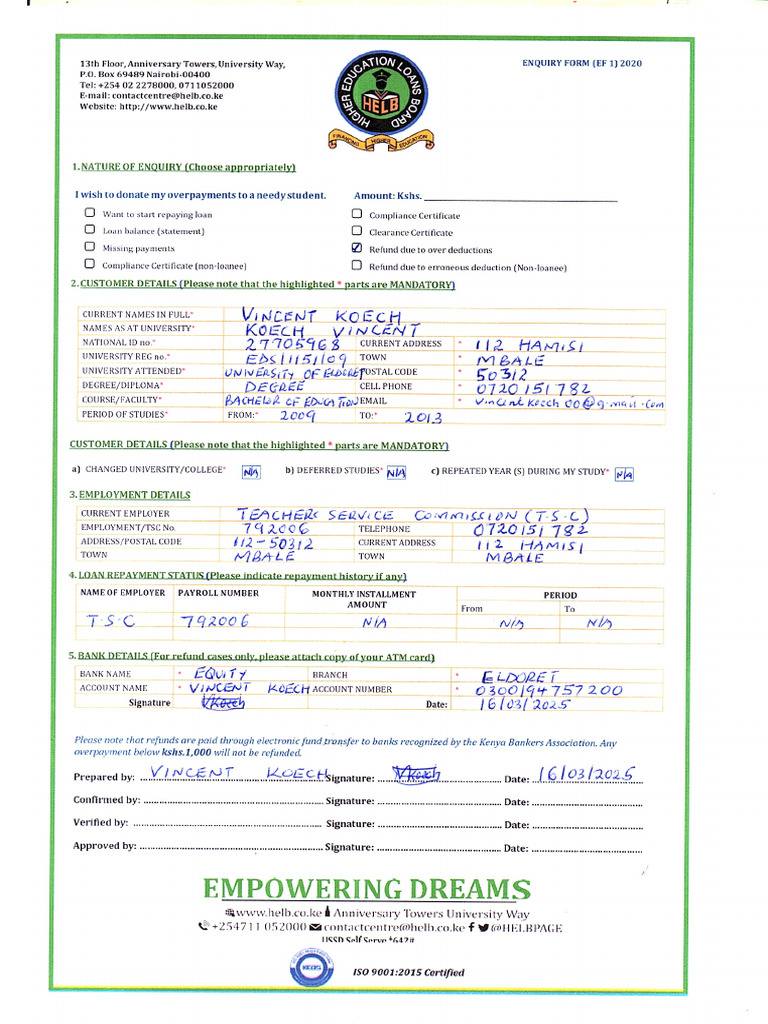 13th Floor, Anniversary Towers, University Way,
P.O. Box 69489 Nairobi-00400
Tel: +254 02 2278000, 0711052000
E-mail: contactcentre@helb.co.ke
Website: http://www.helb.co.ke
HIGHER EDUCATION LOANS BOARD
HELB
FINANCING HIGHER EDUCATION
ENQUIRY FORM (EF 1) 2020
1. NATURE OF ENQUIRY (Choose appropriately)
I wish to donate my overpayments to a needy student. Amount: Kshs.
Want to start repaying loan Compliance Certificate
Loan balance (statement) Clearance Certificate
Missing payments Refund due to over deductions
Compliance Certificate (non-loanee) Refund due to erroneous deduction (Non-loanee)
2. CUSTOMER DETAILS (Please note that the highlighted * parts are MANDATORY)
CURRENT NAMES IN FULL* VINCENT KOECH
NAMES AS AT UNIVERSITY* KOECH VINCENT
NATIONAL ID no.* 27705968 CURRENT ADDRESS * 112 HAMISI
UNIVERSITY REG no.* EDS/1151/09 TOWN * MBALE
UNIVERSITY ATTENDED* UNIVERSITY OF ELDORET POSTAL CODE * 50312
DEGREE/DIPLOMA* DEGREE CELL PHONE * 0720151782
COURSE/FACULTY* BACHELOR OF EDUCATION EMAIL * vincentkoech00@g-mail.com
PERIOD OF STUDIES* FROM:* 2009 TO:* 2013
CUSTOMER DETAILS (Please note that the highlighted * parts are MANDATORY)
a) CHANGED UNIVERSITY/COLLEGE* N/A b) DEFERRED STUDIES* N/A c) REPEATED YEAR (S) DURING MY STUDY* N/A
3. EMPLOYMENT DETAILS
CURRENT EMPLOYER TEACHERS SERVICE COMMISSION (T.S.C)
EMPLOYMENT/TSC No. 792006 TELEPHONE 0720151782
ADDRESS/POSTAL CODE 112-50312 CURRENT ADDRESS 112 HAMISI
TOWN MBALE TOWN MBALE
4. LOAN REPAYMENT STATUS (Please indicate repayment history if any)
NAME OF EMPLOYER PAYROLL NUMBER MONTHLY INSTALLMENT AMOUNT PERIOD
From To
T.S.C 792006 N/A N/A N/A
5. BANK DETAILS (For refund cases only, please attach copy of your ATM card)
BANK NAME * EQUITY BRANCH * ELDORET
ACCOUNT NAME * VINCENT KOECH ACCOUNT NUMBER * 0300194757200
Signature VKoech Date: 16/03/2025
Please note that refunds are paid through electronic fund transfer to banks recognized by the Kenya Bankers Association. Any
overpayment below kshs.1,000 will not be refunded.
Prepared by: VINCENT KOECH Signature: VKoech Date: 16/03/2025
Confirmed by: Signature: Date:
Verified by: Signature: Date:
Approved by: Signature: Date:
EMPOWERING DREAMS
www.helb.co.ke Anniversary Towers University Way
+254711 052000 contactcentre@helb.co.ke @HELBPAGE
USSD Self Serve *642#
KEBS
ISO 9001:2015 Certified